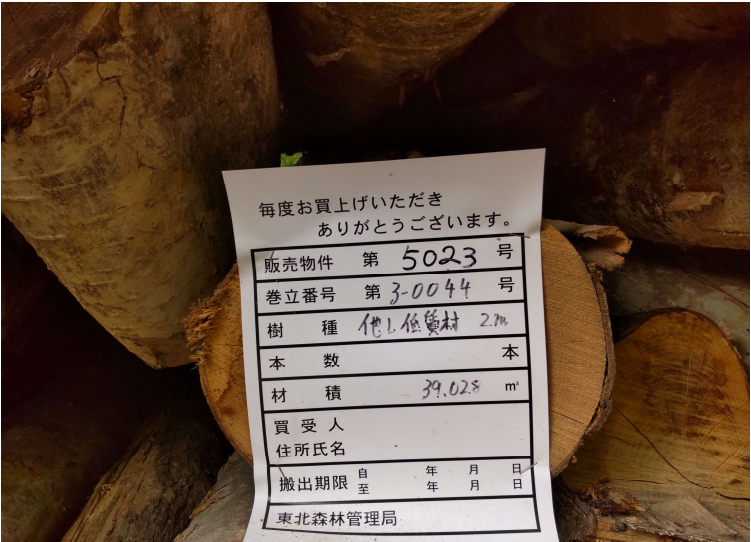 毎度お買上げいただき
ありがとうございます。
販売物件 第 5023 号
巻立番号 第 3-0044 号
樹 種 他L低質材
本 数 本
材 積 39.028 m³
買 受 人
住所氏名
搬出期限 自 年 月 日
至 年 月 日
東北森林管理局